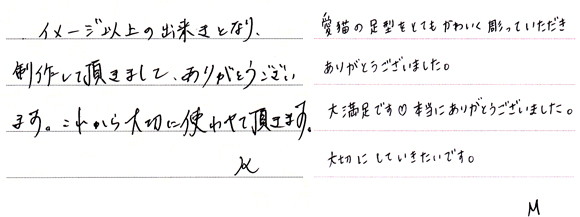 イメージ以上の出来きとなり、
制作して頂きまして、ありがとうござい
ます。これから大切に使わせて頂きます。
K
愛猫の足型をとてもかわいく彫っていただき
ありがとうございました。
大満足です♡本当にありがとうございました。
大切にしていきたいです。
M